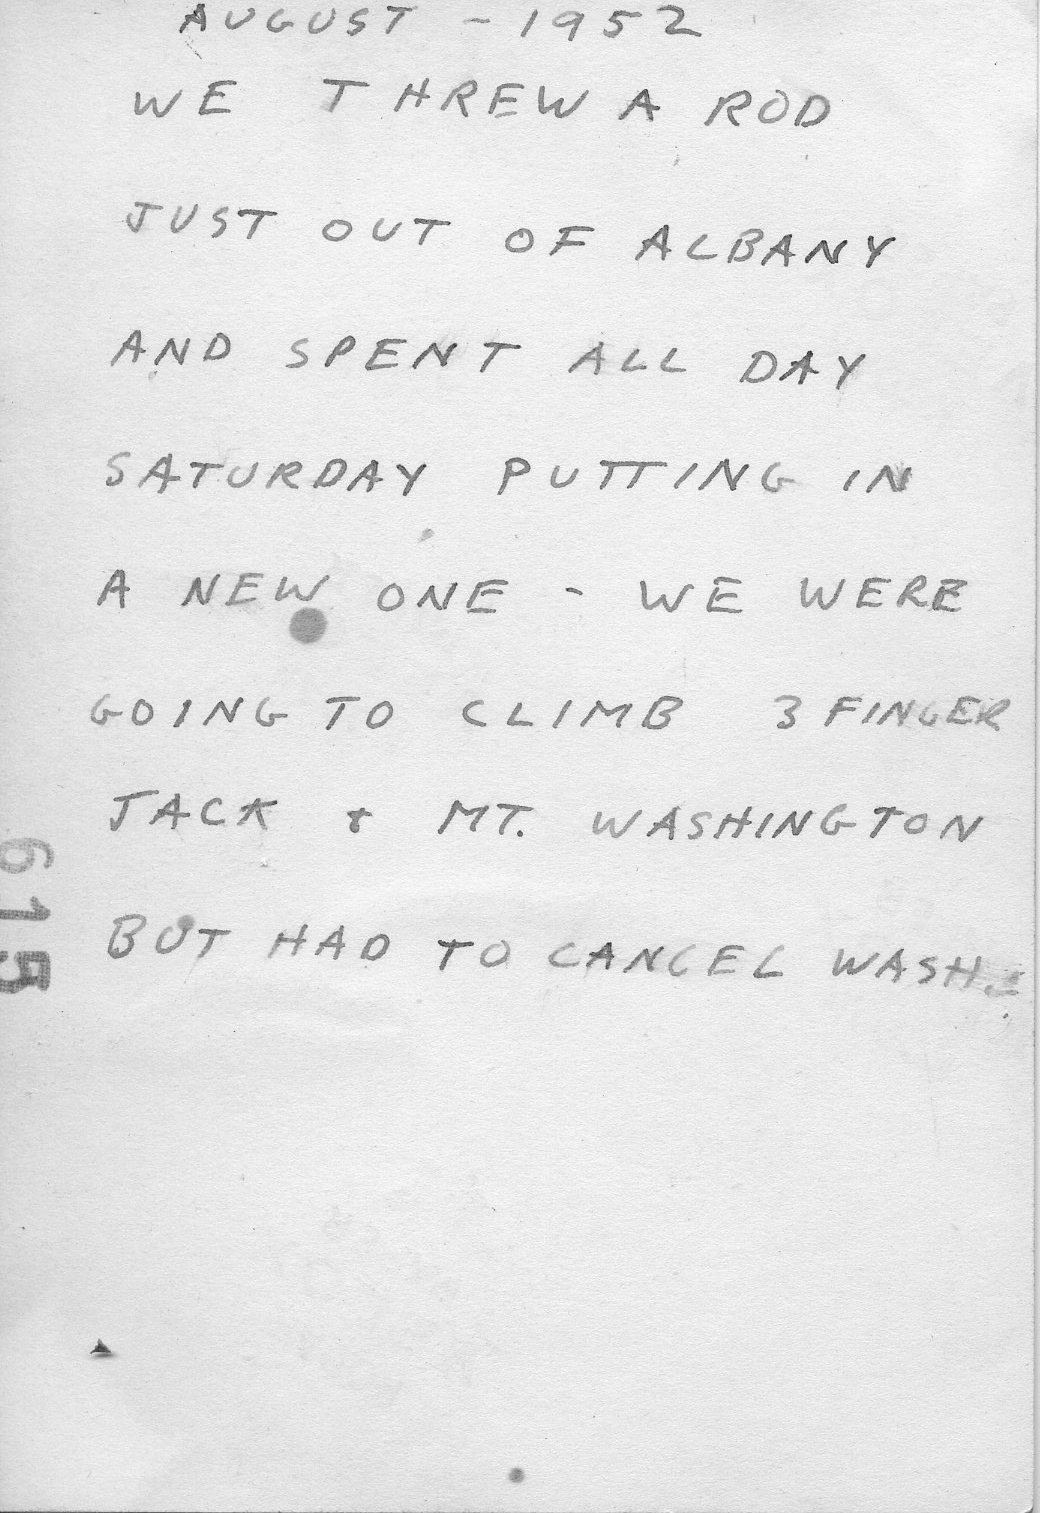 AUGUST - 1952
WE THREW A ROD
JUST OUT OF ALBANY
AND SPENT ALL DAY
SATURDAY PUTTING IN
A NEW ONE - WE WERE
GOING TO CLIMB 3 FINGER
JACK & MT. WASHINGTON
BUT HAD TO CANCEL WASH.
615